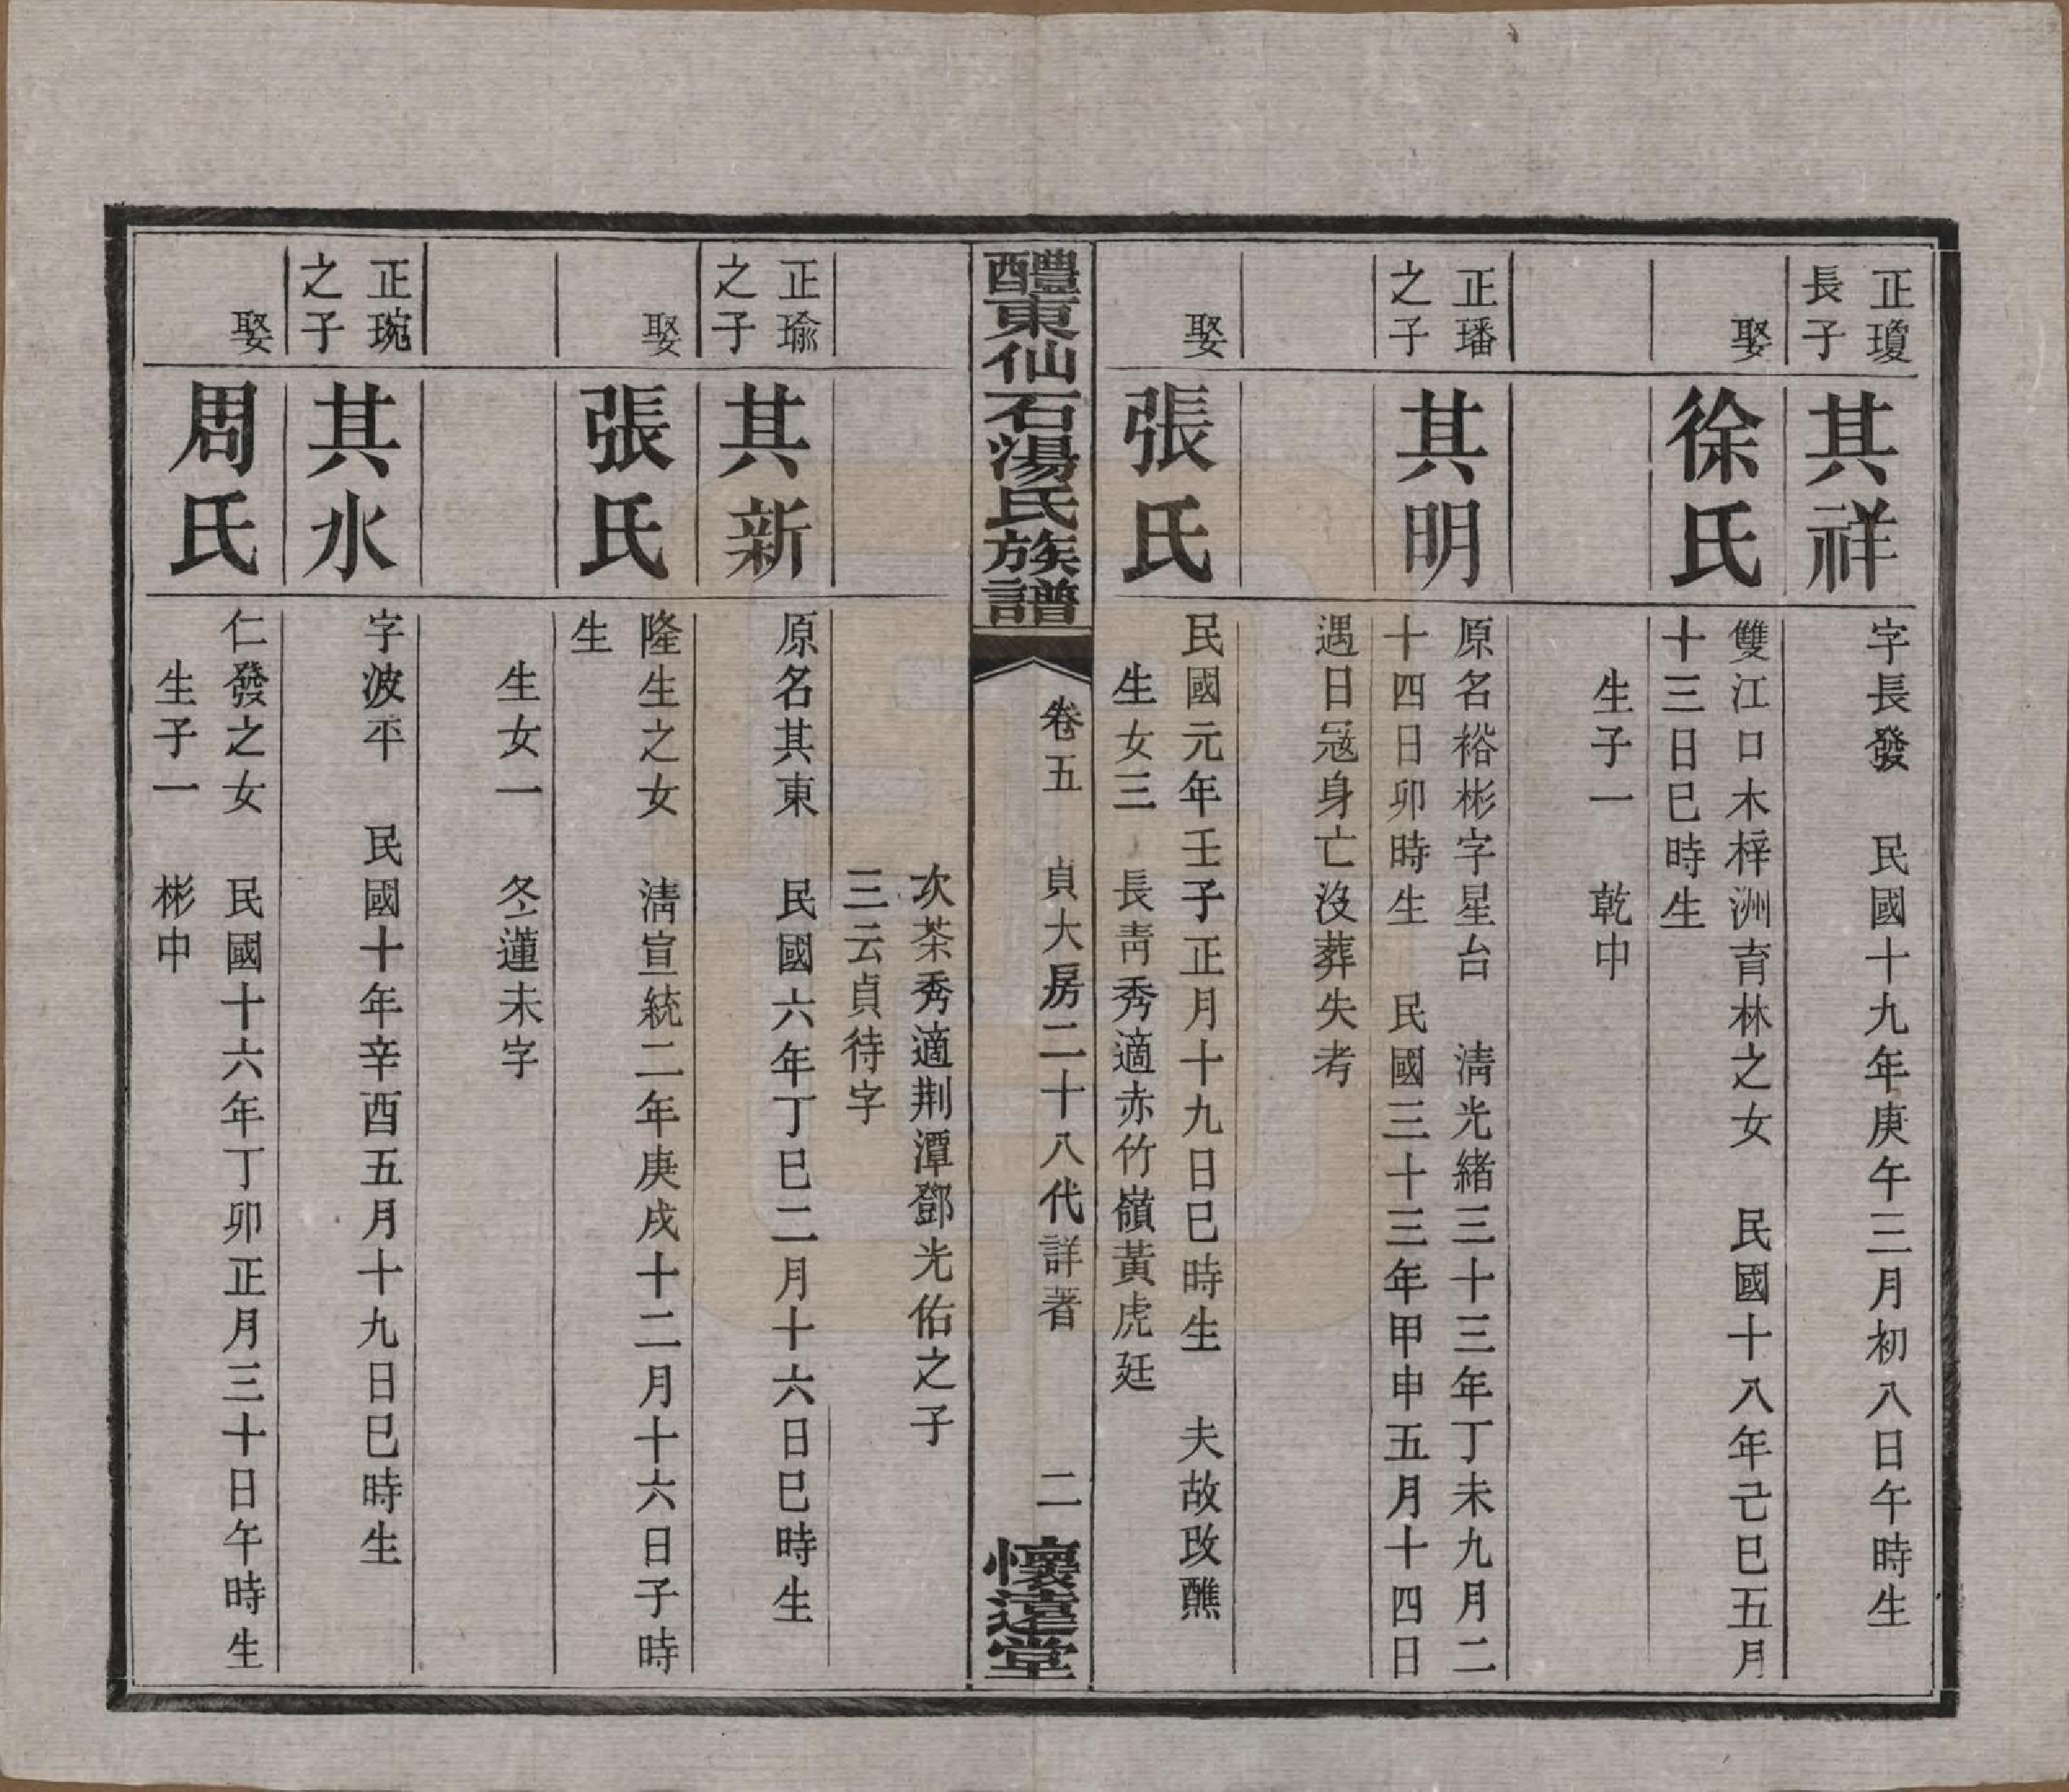 正瓊
長子
其祥
字長發　民國十九年庚午三月初八日午時生
娶
徐氏
雙江口木梓洲育林之女　民國十八年己巳五月
十三日巳時生
生子一　乾中
正璠
之子
其明
原名裕彬字星台　清光緒三十三年丁未九月二
十四日卯時生　民國三十三年甲申五月十四日
遇日寇身亡沒葬失考
娶
張氏
民國元年壬子正月十九日巳時生　夫故改醮
生女三　長青秀適赤竹嶺黃虎廷
醴東仙石湯氏族譜
卷五　貞大房二十八代詳著　二
懷遠堂
次茶秀適荆潭鄧光佑之子
三云貞待字
正瑜
之子
其新
原名其東　民國六年丁巳二月十六日巳時生
娶
張氏
隆生之女　清宣統二年庚戌十二月十六日子時
生
生女一　冬蓮未字
正琬
之子
其水
字波平　民國十年辛酉五月十九日巳時生
娶
周氏
仁發之女　民國十六年丁卯正月三十日午時生
生子一　彬中